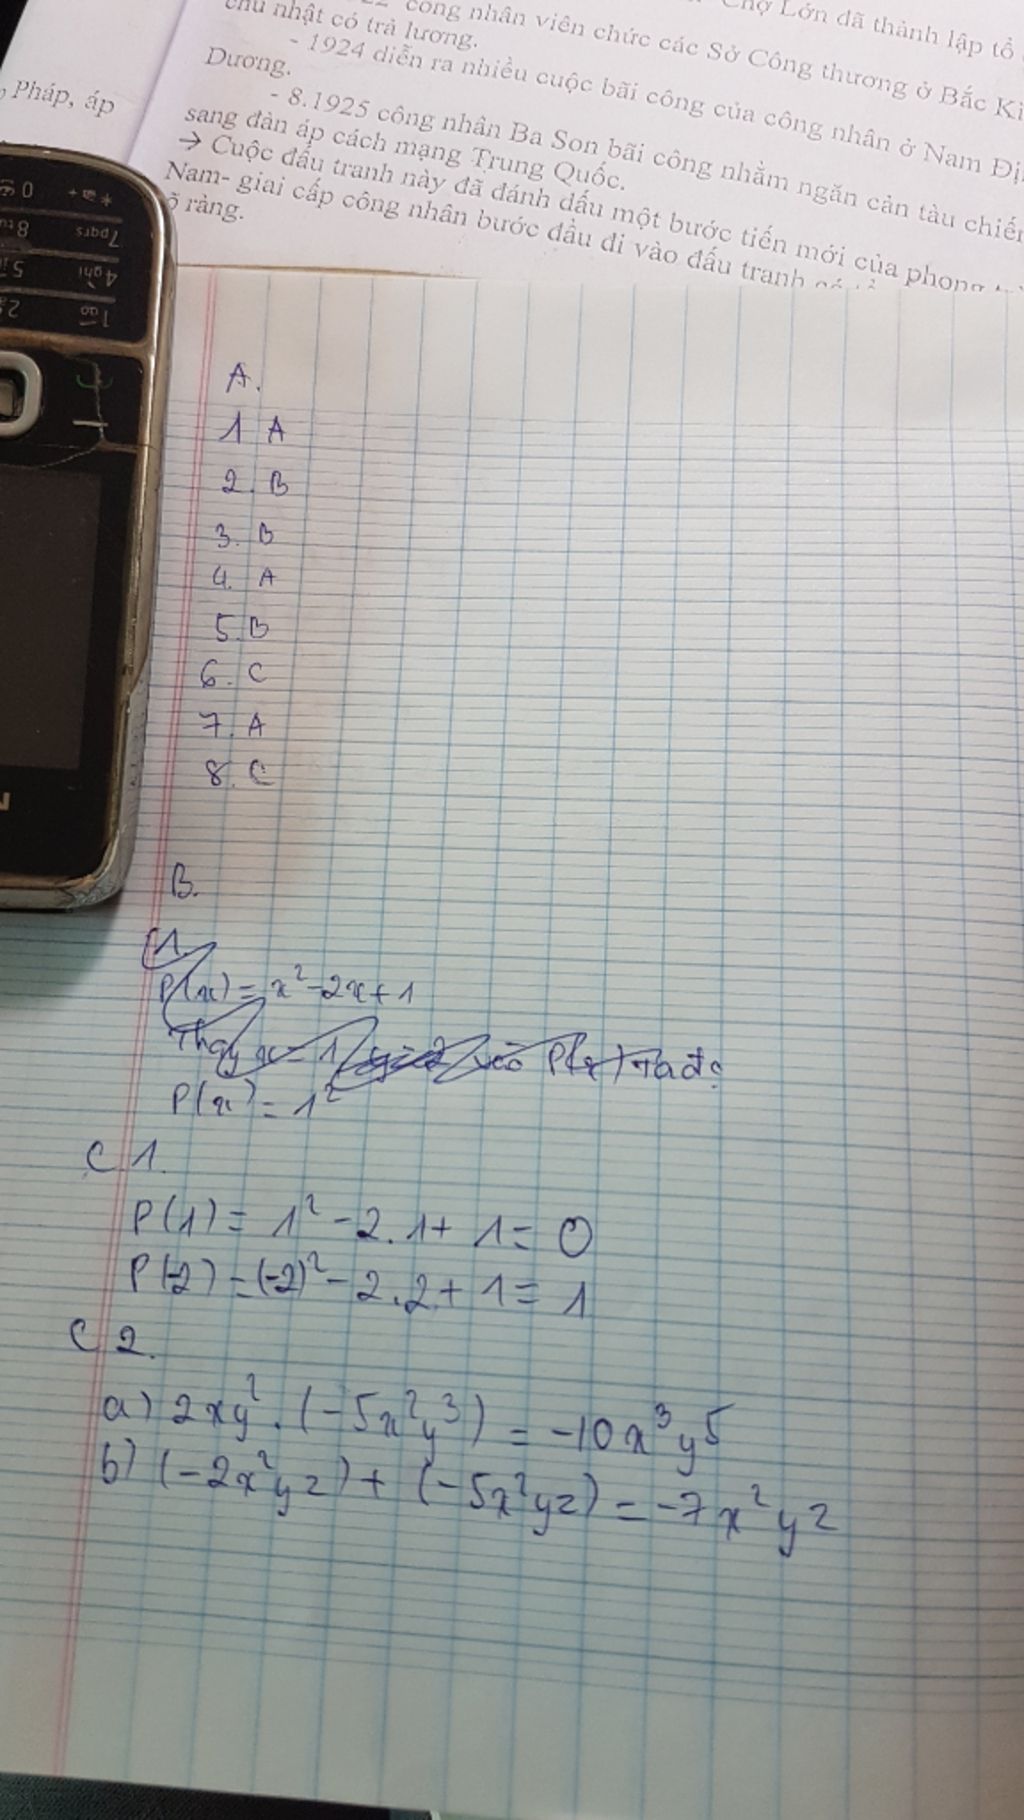 Chợ Lớn đã thành lập tổ
công nhân viên chức các Sở Công thương ở Bắc Kì
chủ nhật có trả lương.
- 1924 diễn ra nhiều cuộc bãi công của công nhân ở Nam Đị
Dương.
- 8.1925 công nhân Ba Son bãi công nhằm ngăn cản tàu chiến
sang đàn áp cách mạng Trung Quốc.
→ Cuộc đấu tranh này đã đánh dấu một bước tiến mới của phong
Nam- giai cấp công nhân bước đầu đi vào đấu tranh
õ ràng.
Pháp, áp
* +
0
7pqrs
8
4ghi
5
1ao
2
A.
1 A
2. B
3. B
4. A
5. B
6. C
7. A
8. C
B.
1.
P(x) = x² - 2x + 1
Thay x = 1 vào P(x) Ta đc
P(x) = 1²
C 1.
P(1) = 1² - 2.1 + 1 = 0
P(-2) = (-2)² - 2.2 + 1 = 1
C 2.
a) 2xy² . (-5x²y³) = -10x³y5
b) (-2x²yz) + (-5x²yz) = -7x²yz